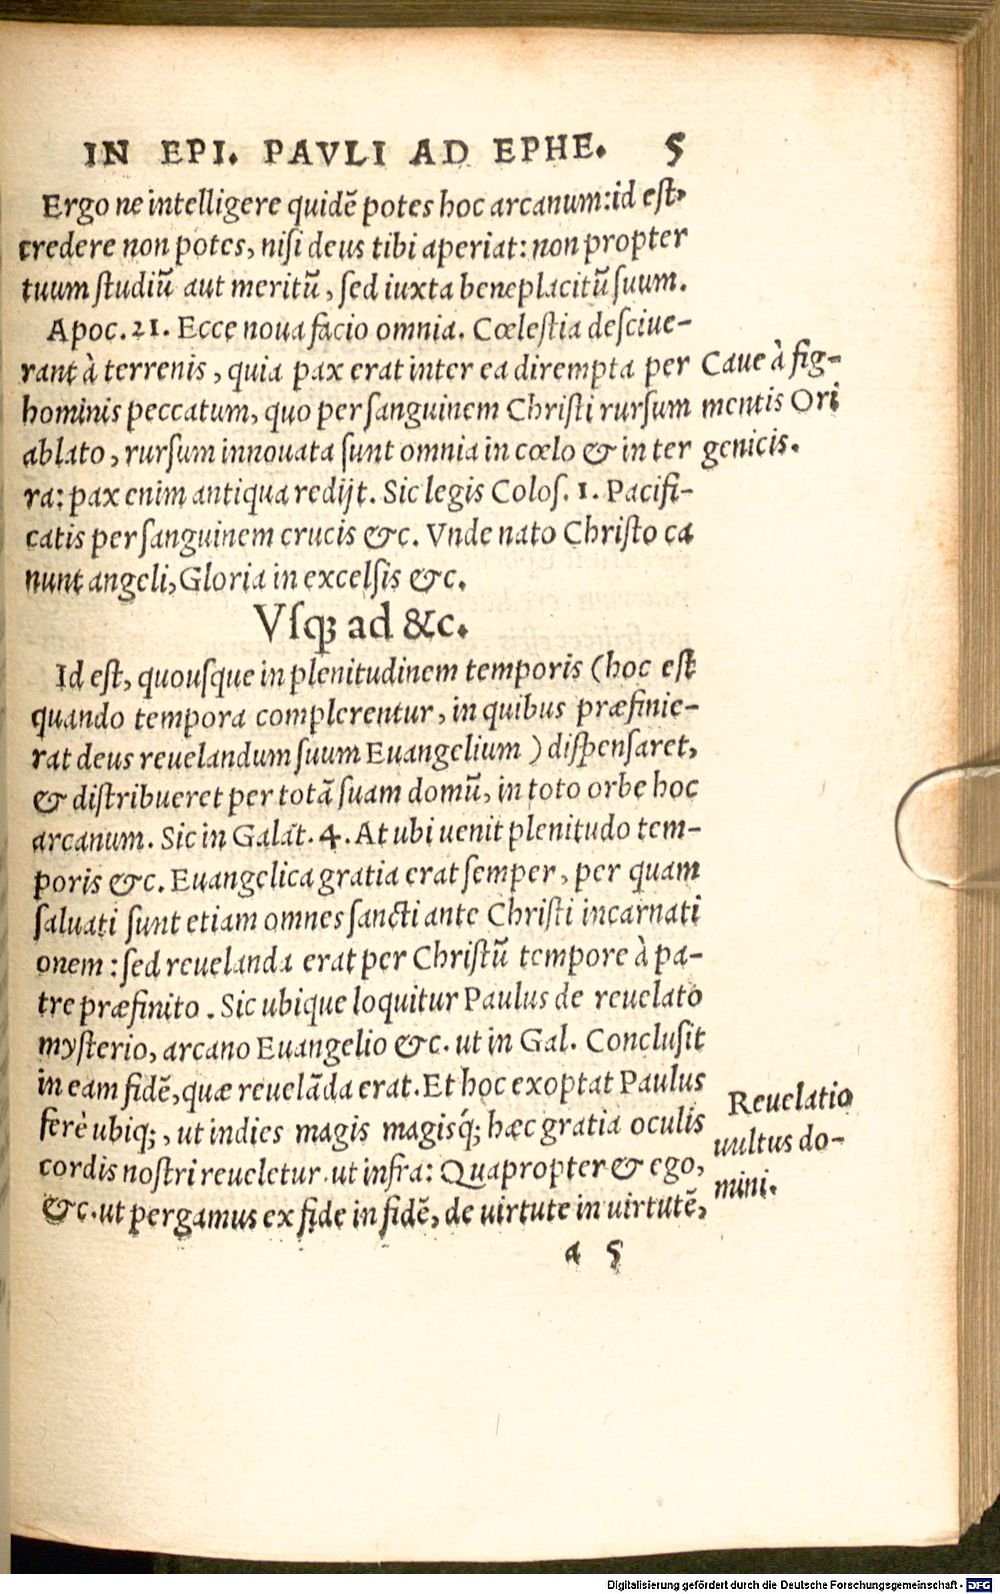 IN EPI. PAVLI AD EPHE. 5
Ergo ne intelligere quidẽ potes hoc arcanum: id est,
credere non potes, nisi deus tibi aperiat: non propter
tuum studiũ aut meritũ, sed iuxta beneplacitũ suum.
Apoc. 21. Ecce noua facio omnia. Cœlestia desciue-
rant à terrenis, quia pax erat inter ea dirempta per
hominis peccatum, quo per sanguinem Christi rursum
ablato, rursum innouata sunt omnia in cœlo & in ter
ra: pax enim antiqua redijt. Sic legis Colos. 1. Pacifi-
catis per sanguinem crucis &c. Vnde nato Christo ca
nunt angeli, Gloria in excelsis &c.
Caue à fig-
mentis Ori
genicis.
Vsq; ad &c.
Id est, quousque in plenitudinem temporis (hoc est
quando tempora complerentur, in quibus præfinie-
rat deus reuelandum suum Euangelium) dispensaret,
& distribueret per totã suam domũ, in toto orbe hoc
arcanum. Sic in Galat. 4. At ubi uenit plenitudo tem-
poris &c. Euangelica gratia erat semper, per quam
saluati sunt etiam omnes sancti ante Christi incarnati
onem: sed reuelanda erat per Christũ tempore à pa-
tre præfinito. Sic ubique loquitur Paulus de reuelato
mysterio, arcano Euangelio &c. ut in Gal. Conclusit
in eam fidẽ, quæ reuelãda erat. Et hoc exoptat Paulus
ferè ubiq;, ut indies magis magisq́; hæc gratia oculis
cordis nostri reueletur. ut infra: Quapropter & ego,
&c. ut pergamus ex fide in fidẽ, de uirtute in uirtutẽ,
Reuelatio
uultus do-
mini.
a 5
Digitalisierung gefördert durch die Deutsche Forschungsgemeinschaft - DFG